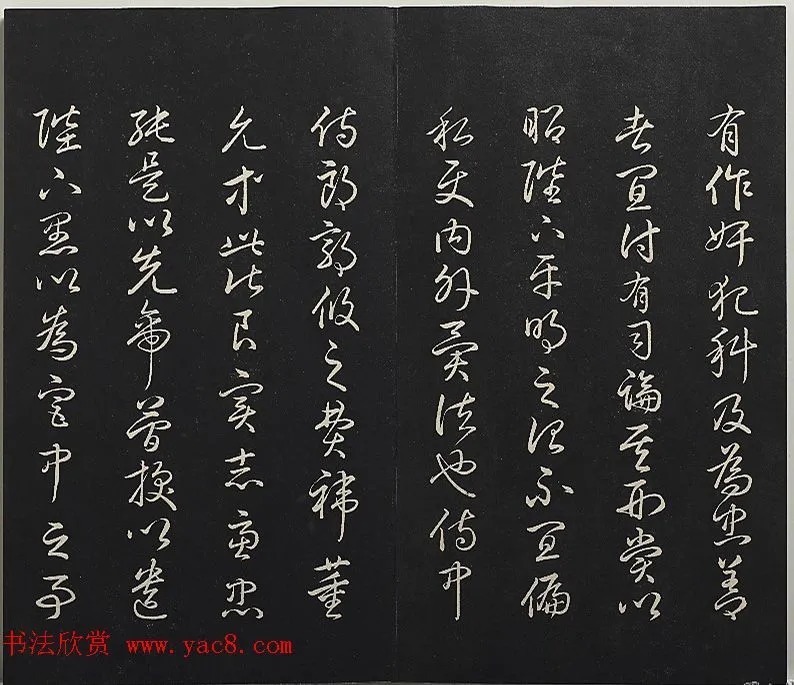 有作奸犯科及為忠善
者宜付有司論其刑賞以
昭陛下平明之治不宜偏
私使内外異法也侍中
侍郎郭攸之費禕董
允等此皆良實志慮忠
純是以先帝簡拔以遺
陛下愚以為宮中之事
书法欣赏 www.yac8.com